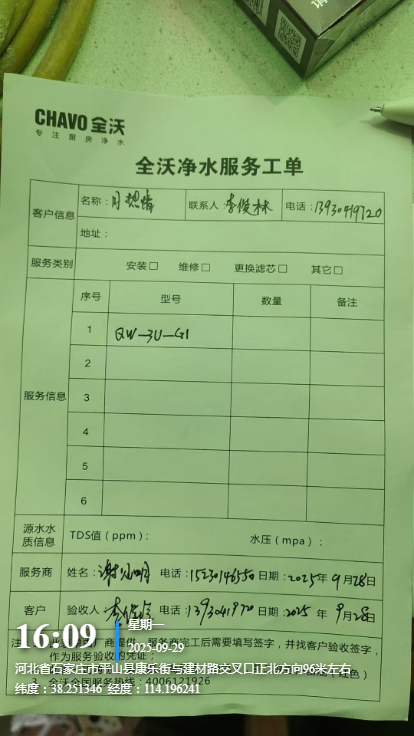 CHAVO 全沃
专注厨房净水
全沃净水服务工单
客户信息
名称：
联系人：李俊林
电话：13930419720
地址：
服务类别
安装□ 维修□ 更换滤芯□ 其它□
服务信息
序号 型号 数量 备注
1 QW-3U-G1
2
3
4
5
6
源水水质信息
TDS值（ppm）： 水压（mpa）：
服务商 姓名： 电话：15230146550 日期：2025年9月28日
客户 验收人： 电话： 日期：2025年9月28日
服务商完工后需要填写签字，并找客户验收签字，
作为服务验收的凭证；
全沃全国服务热线：4006121926
16:09
星期一
2025-09-29
河北省石家庄市平山县康乐街与建材路交叉口正北方向96米左右
纬度：38.251346 经度：114.196241